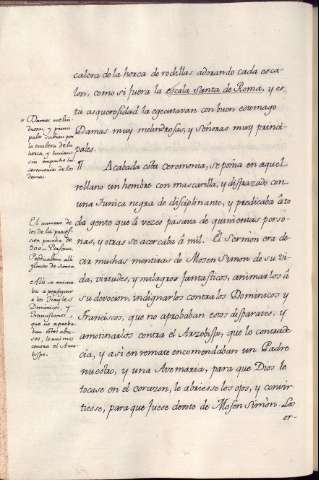 calera de la horca de rodillas adorando cada esca-
lon, como si fuera la escala Santa de Roma, y es-
ta asquerosidad la egecutavan con buen estomago
Damas muy melindrosas, y señoras muy princi-
pales.
Acabada esta ceremonia, se ponia en aquel
rellano un hombre con mascarilla, y disfrazado con
una tunica negra de disciplinante, y predicaba
da gente que à vezes pasava de quinientas perso-
nas, y otras se acercaba â mil. El Sermon era de-
cir muchas mentiras de Mosen Simon de su vi-
da, virtudes, y milagros fantasticos, animarlos â
su devocion, indignarlos contra los Dominicos y
Franciscos, que no aprobaban estos disparates, y
amotinarlos contra el Arzobispo, que lo
cia, y asi en remate encomendaban un Padre
nuestro, y una Ave maria, para que Dios le
tocase en el corazon, le abriesse los ojos, y convir-
tiesse, para que fuese devoto de Mosen Simon. Los
er-
Damas
y princi-
pales subian por
la escalera de la
horca, y hacian
sin
ceremonias de
El numero de
los de la
era pasaba de
500
Predicaban
Alli se
a predicarse
a los
Dominicos, y
Franciscanos
que no aproba-
ban estos abu-
sos, y aun mas
contra el Arzo-
bispo.